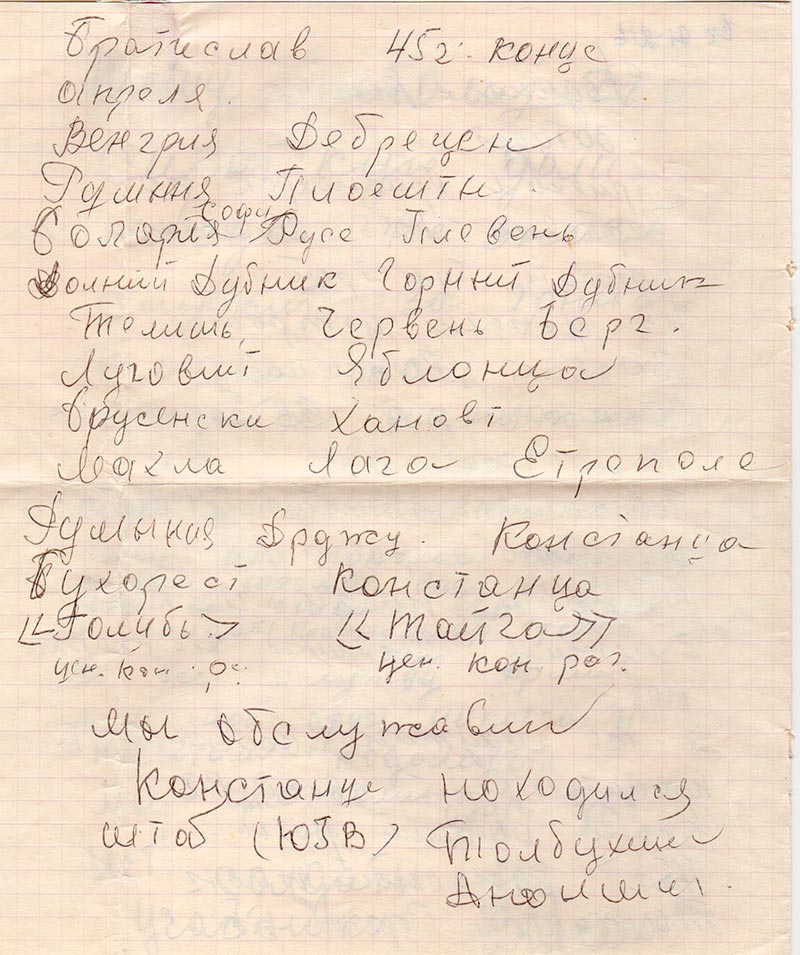 Братислав 45г. конце
апреля.
Венгрия Дебрецен
Румыния Плоешти
Софи
Болгария Русе Плевень
Долний Дубник Горний Дубник
Телишь, Червень Берг.
Луговит Яблонца
Брусенски Хановт
Махла Лага Етрополе
Румыния Држу. Констанца
Бухорест Констанца
<<Голубь>> <<Тайга>>
цен. кон. цен. кон раз.
мы обслужавли
Констанце находился
штаб (ЮГВ) Толбухин